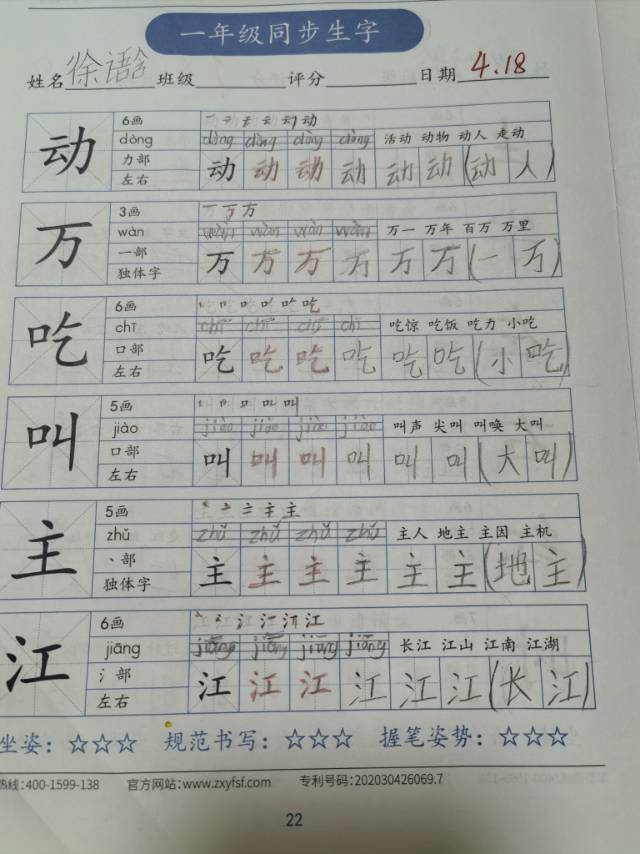 一年级同步生字
姓名 徐语含 班级 评分 日期 4.18
动 6画
dòng dòng dòng dòng dòng 活动 动物 动人 走动
力部 动 动 动 动 动 动 (动 人)
左右
万 3画
wàn wàn wàn wàn wàn 万一 万年 百万 万里
一部 万 万 万 万 万 万 (一 万)
独体字
吃 6画
chī chī chī chī chī 吃惊 吃饭 吃力 小吃
口部 吃 吃 吃 吃 吃 吃 (小 吃)
左右
叫 5画
jiào jiào jiào jiào jiào 叫声 尖叫 叫唤 大叫
口部 叫 叫 叫 叫 叫 叫 (大 叫)
左右
主 5画
zhǔ zhǔ zhǔ zhǔ zhǔ 主人 地主 主因 主机
丶部 主 主 主 主 主 主 (地 主)
独体字
江 6画
jiāng jiāng jiāng jiāng jiāng 长江 江山 江南 江湖
氵部 江 江 江 江 江 江 (长 江)
左右
坐姿：☆☆☆ 规范书写：☆☆☆ 握笔姿势：☆☆☆
热线：400-1599-138 官方网站：www.zxyfsf.com 专利号码：202030426069.7
22